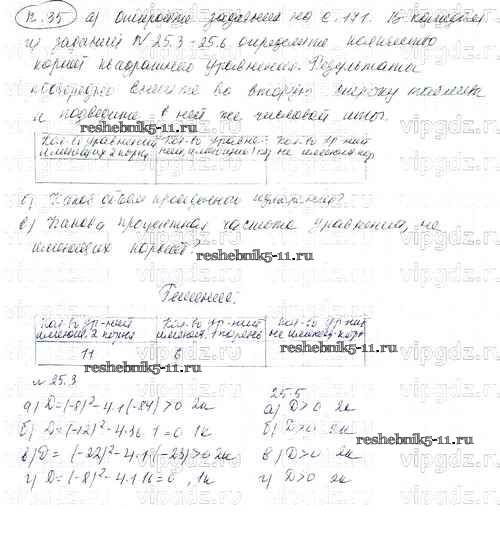 п.35 а) откройте задачник на с. 171. В каждом
из заданий №25.3-25.6 определите количество
корней квадратного уравнения. Результаты
поочередно внесите во вторую строку таблицы
и подведите в ней же числовой итог.
reshebnik5-11.ru
Кол-во уравнений имеющих 2 корня Кол-во уравне- ний, имеющих 1 кор Кол-во ур-ний не имеющ. кор
б) Каков объем проведенного измерения?
в) Какова процентная частота уравнения, не
имеющих корней?
reshebnik5-11.ru
Решение:
Кол-во ур-ний имеющ. 2 корня Кол-во ур-ний имеющ. 1 корень Кол-во ур-ний не имеющ. корн
11 6
reshebnik5-11.ru
№25.3
а) D=(-8)²-4·1(-84)>0 2к
б) D=(-12)²-4·36·1=0 1к
в) D=(-22)²-4·1·(-23)>0 2к
г) D=(-8)²-4·1·16=0, 1к
25.5
а) D>0 2к
б) D>0 2к
в) D>0 2к
г) D>0 2к
vipgdz.com